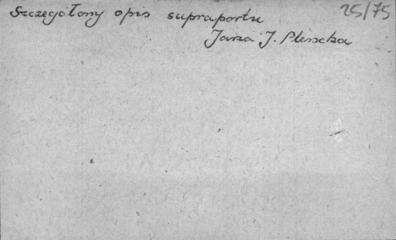 Szczegółowy opis supraportu 25/75
Jana J. Plerscha